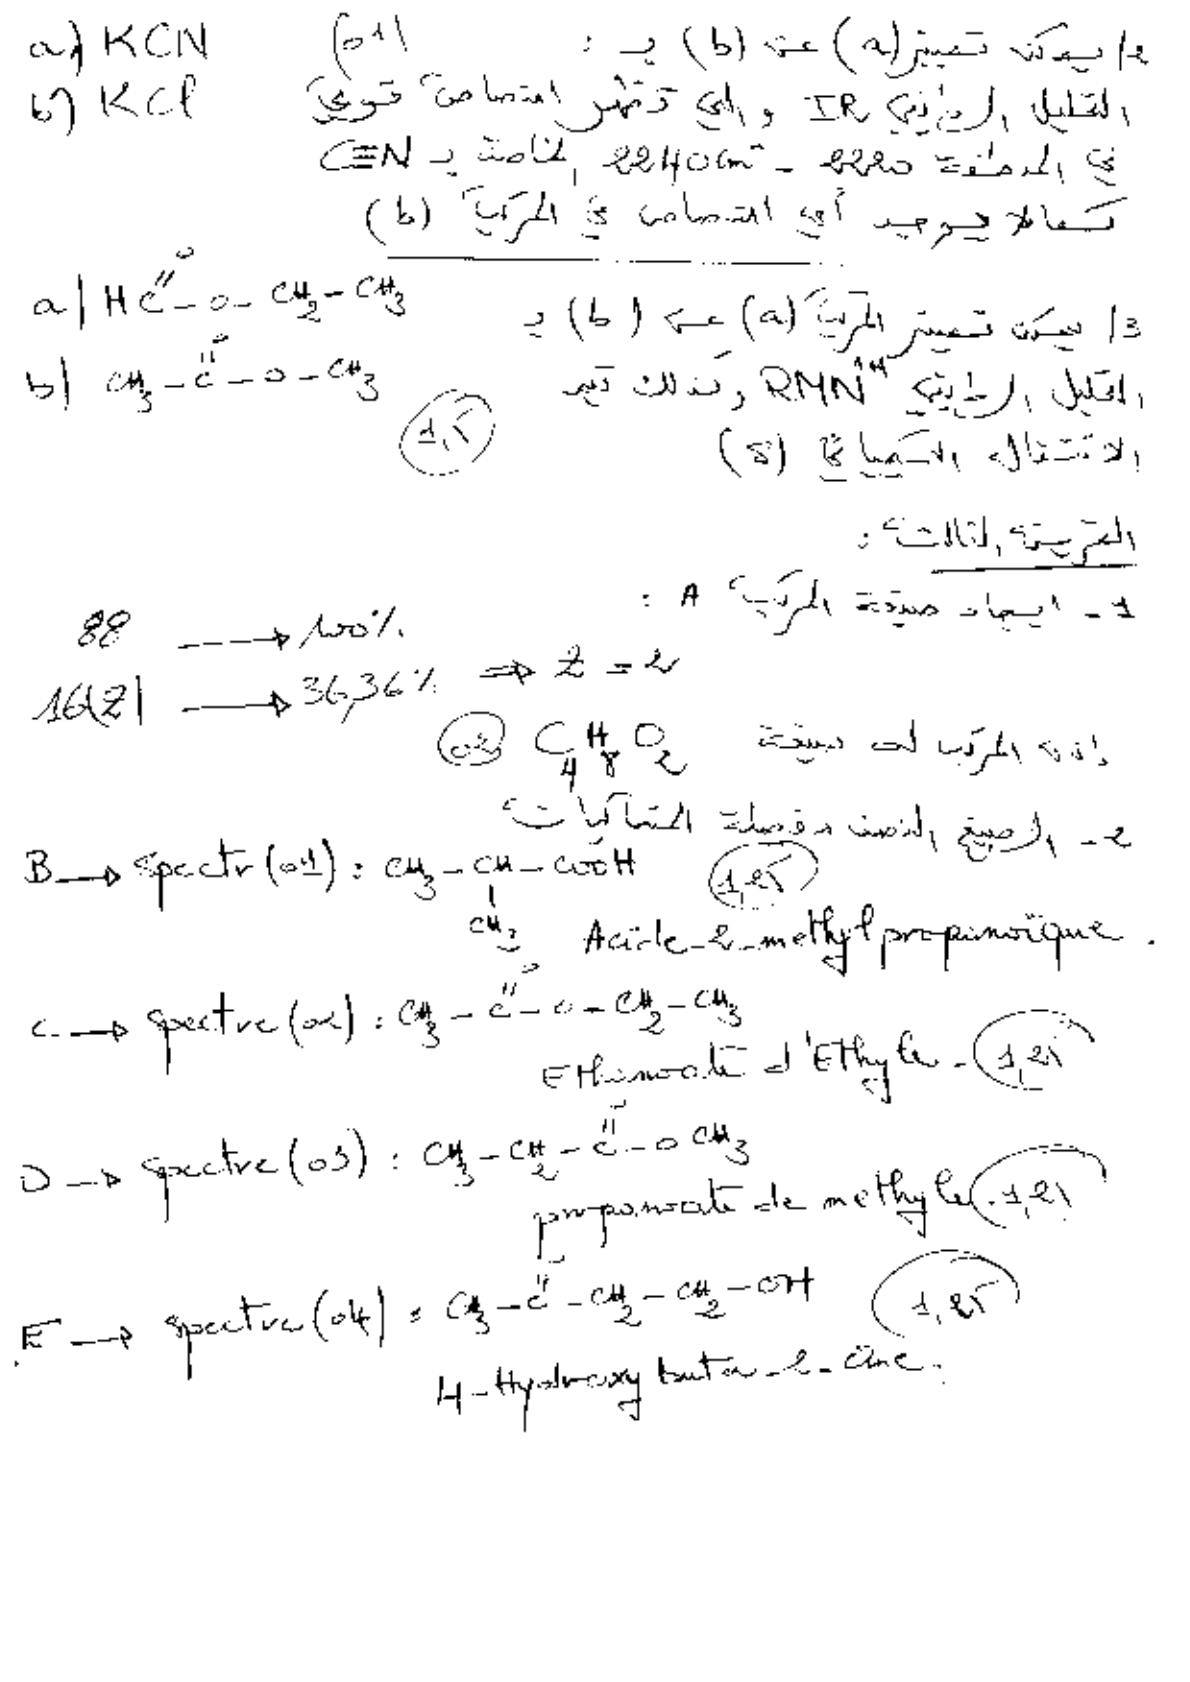 a) KCN (01) 2/ يمكن تمييز (a) عن (b) بـ :
b) KCl التحليل الطيفي IR والتي تظهر امتصاصية قوية
في المنطقة 2220 - 2240cm⁻ الخاصة بـ C≡N
كما لا يوجد أي امتصاص في المركب (b)
a) HC(=O)-O-CH2-CH3 3/ يمكن تمييز المركب (a) عن (b) بـ
b) CH3-C(=O)-O-CH3 التحليل الطيفي RMN¹ᴴ وكذلك
1,5 الانتقال الكيميائي (δ)
التمرين الثالث :
1- ايجاد صيغة المركب A :
88 ---→ 100%
16(Z) ---→ 36,36% ⇒ Z = 2
إذن المركب له صيغة C4H8O2 02
2- الصيغ النصف مفصلة المتماكبات
B → Spectr (01) : CH3-CH-COOH 1,25
CH3 Acide-2-methylpropanoïque.
C → Spectre (02) : CH3-C(=O)-O-CH2-CH3
Ethanoate d'Ethyle. 1,25
D → Spectre (03) : CH3-CH2-C(=O)-OCH3
propanoate de methyle. 1,25
E → Spectre (04) : CH3-C(=O)-CH2-CH2-OH 1,25
4-Hydroxy buta-2-one.